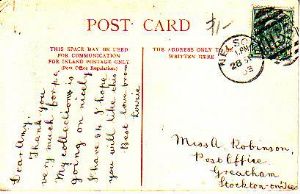 POST CARD
£1/-
THIS SPACE MAY BE USED
FOR COMMUNICATION
FOR INLAND POSTAGE ONLY
(Post Office Regulation)
THE ADDRESS ONLY TO BE
WRITTEN HERE
Dear Amy,
Thank you
very much for p.c.
My collection is
going on nicely
I have 64. I hope
you will like this
Best love from
Miss A Robinson,
Post Office
Greatham
Stockton-on-Tees